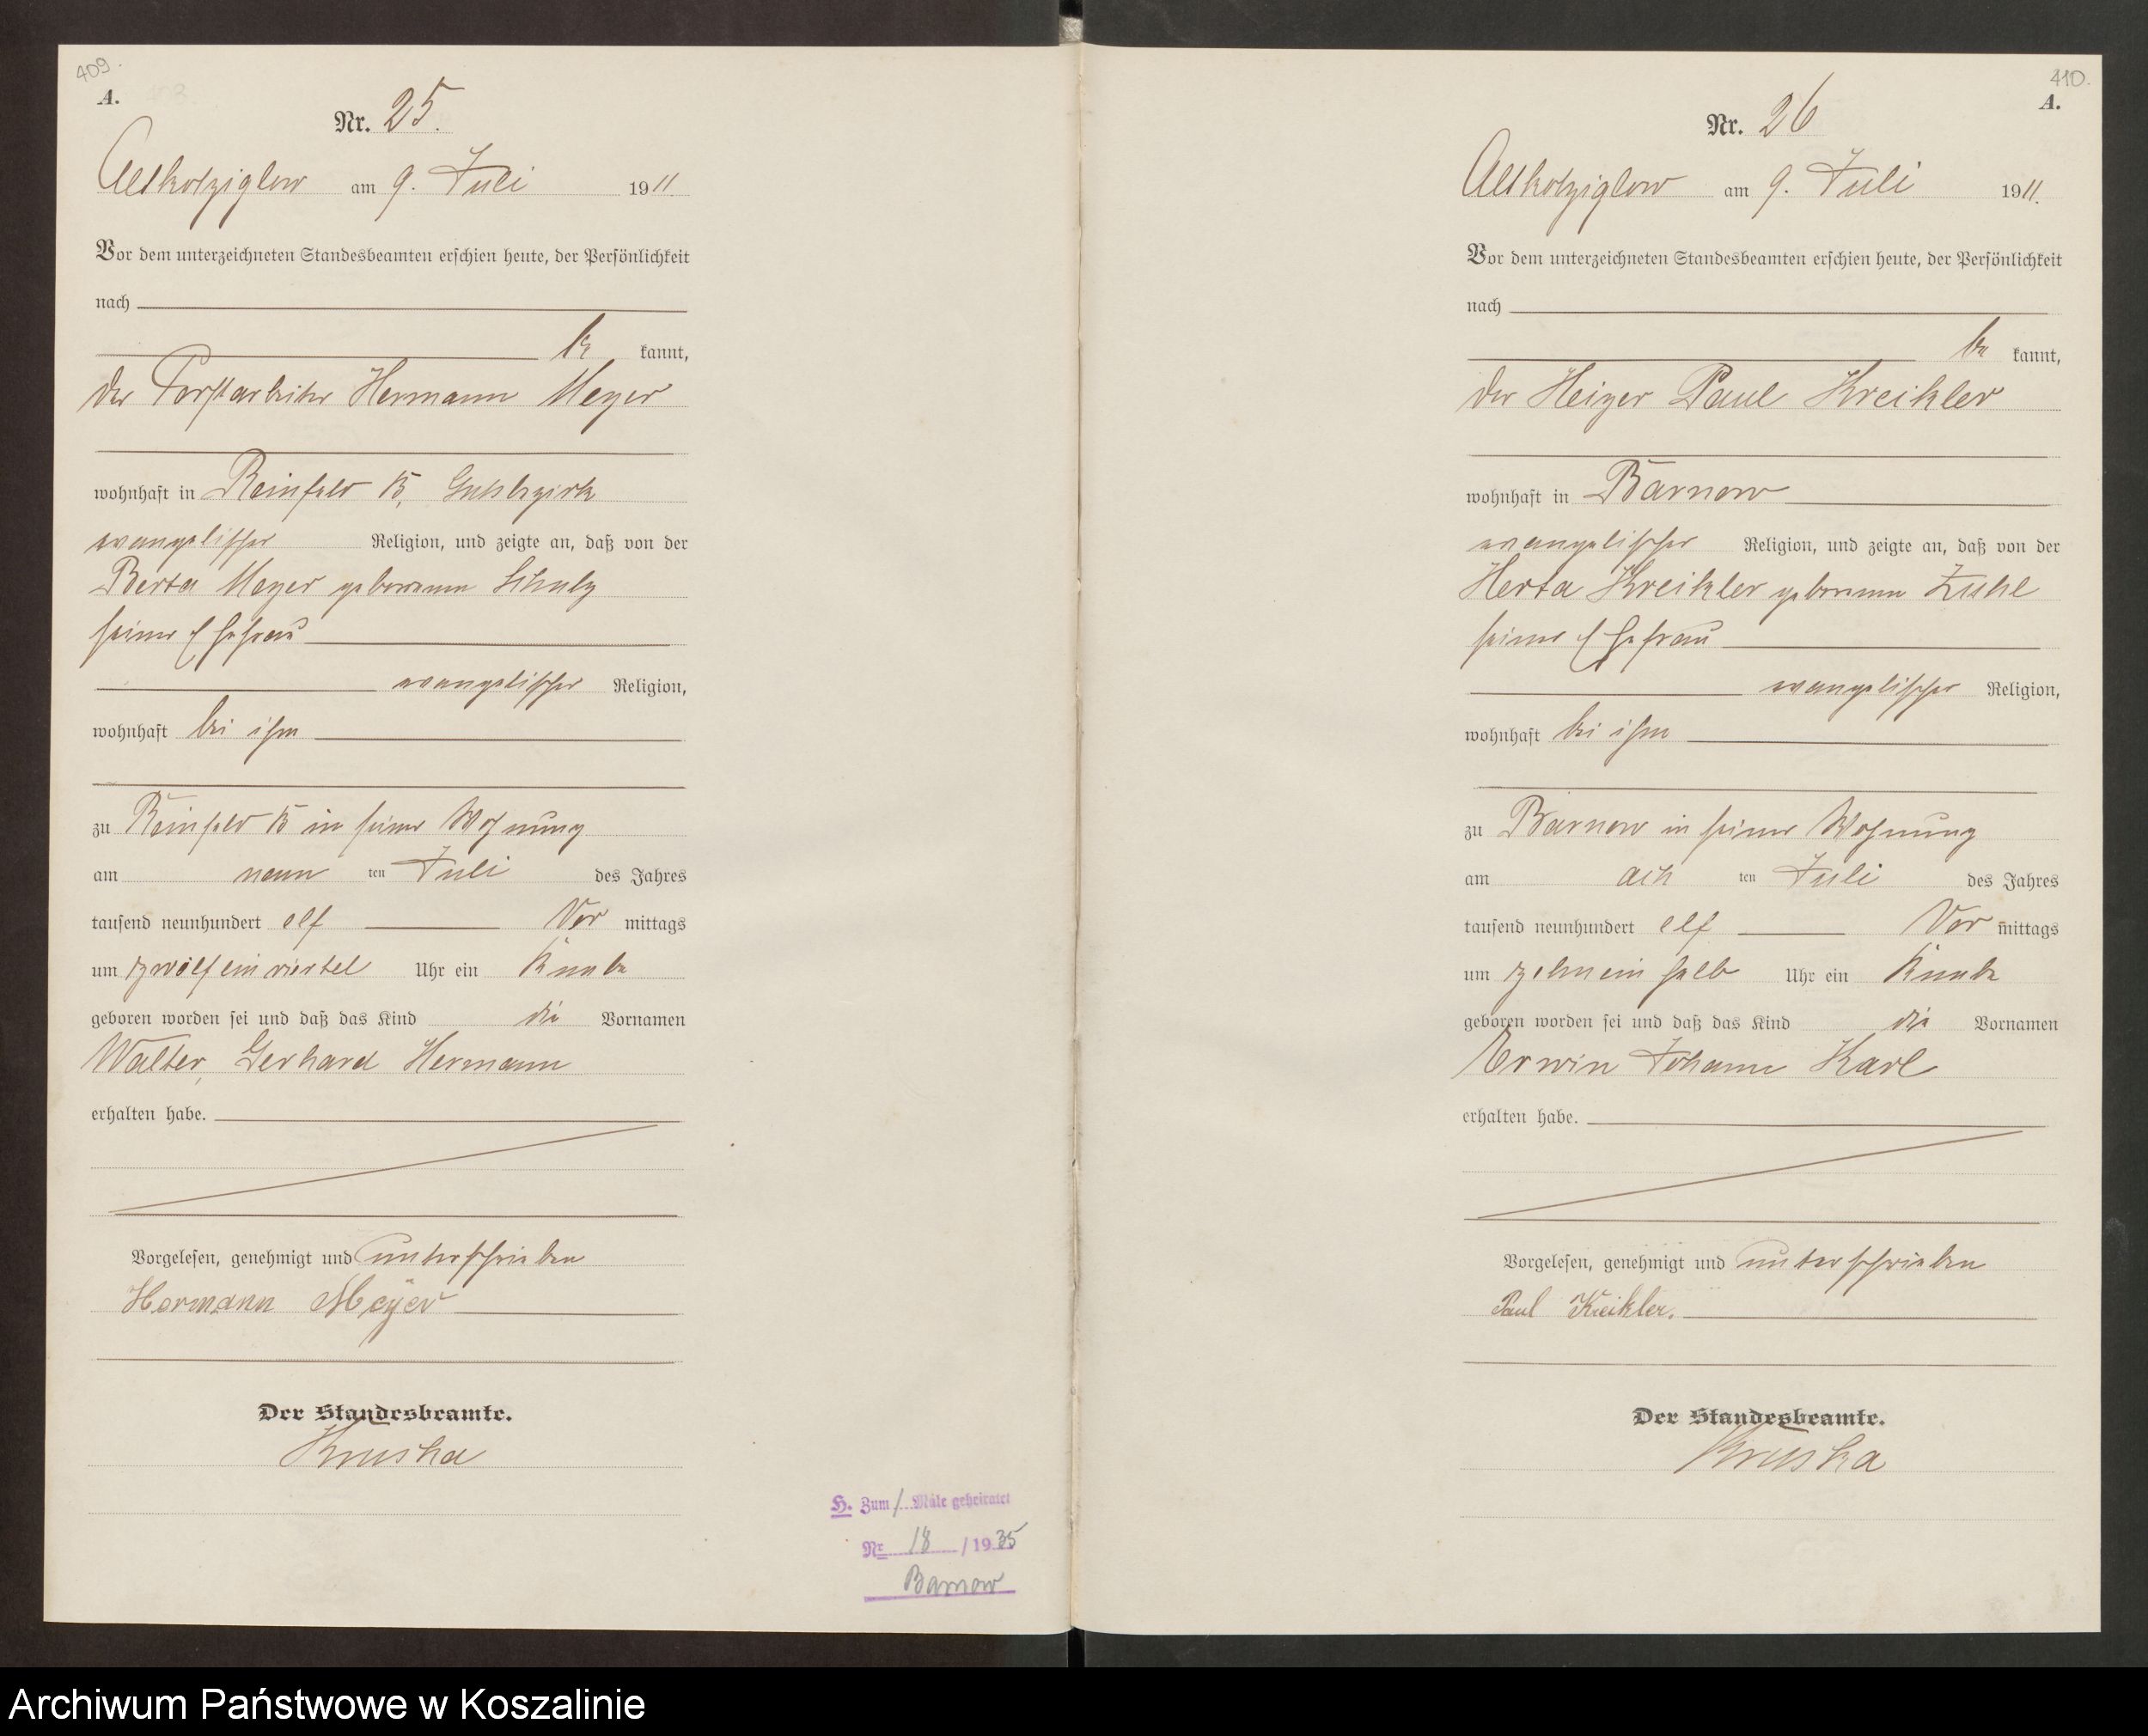 409.
A.
Nr. 25.
Altkolziglow am 9. Juli 1911.
Vor dem unterzeichneten Standesbeamten erschien heute, der Persönlichkeit
nach
be kannt,
der Forstarbeiter Hermann Meyer
wohnhaft in Reinfeld B, Gutsbezirk
evangelischer Religion, und zeigte an, daß von der
Berta Meyer geborenen Schulz
seiner Ehefrau
evangelischer Religion,
wohnhaft bei ihm
zu Reinfeld B in seiner Wohnung
am neun ten Juli des Jahres
tausend neunhundert elf Vor mittags
um zwölfeinviertel Uhr ein Knabe
geboren worden sei und daß das Kind die Vornamen
Walter, Gerhard Hermann
erhalten habe.
Vorgelesen, genehmigt und unterschrieben
Hermann Meyer
Der Standesbeamte.
Kruska
H. Zum 1 Male geheiratet
Nr 18 / 1935
Barnow
410.
A.
Nr. 26
Altkolziglow am 9. Juli 1911.
Vor dem unterzeichneten Standesbeamten erschien heute, der Persönlichkeit
nach
be kannt,
der Heizer Paul Kreikler
wohnhaft in Barnow
evangelischer Religion, und zeigte an, daß von der
Herta Kreikler geborenen Zuhl
seiner Ehefrau
evangelischer Religion,
wohnhaft bei ihm
zu Barnow in seiner Wohnung
am ach ten Juli des Jahres
tausend neunhundert elf Vor mittags
um zehneinhalb Uhr ein Knabe
geboren worden sei und daß das Kind die Vornamen
Erwin Johann Karl
erhalten habe.
Vorgelesen, genehmigt und unterschrieben
Paul Kreikler.
Der Standesbeamte.
Kruska
Archiwum Państwowe w Koszalinie